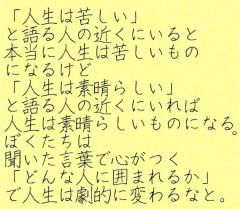 「人生は苦しい」
と語る人の近くにいると
本当に人生は苦しいもの
になるけど
「人生は素晴らしい」
と語る人の近くにいれば
人生は素晴らしいものになる。
ぼくたちは
聞いた言葉で心がつく
「どんな人に囲まれるか」
で人生は劇的に変わるなと。